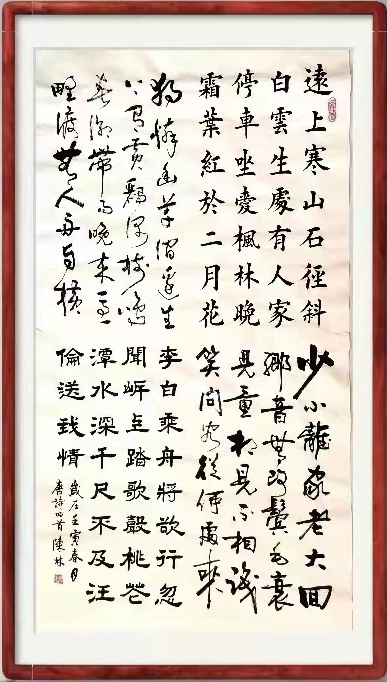 遠上寒山石徑斜
白雲生處有人家
停車坐愛楓林晚
霜葉紅於二月花
獨憐幽草澗邊生
上有黃鸝深樹鳴
春潮帶雨晚來急
野渡無人舟自橫
少小離家老大回
鄉音無改鬢毛衰
兒童相見不相識
笑問客從何處來
李白乘舟將欲行忽
聞岸上踏歌聲桃花
潭水深千尺不及汪
倫送我情
歲在壬寅春月
唐詩四首陳林